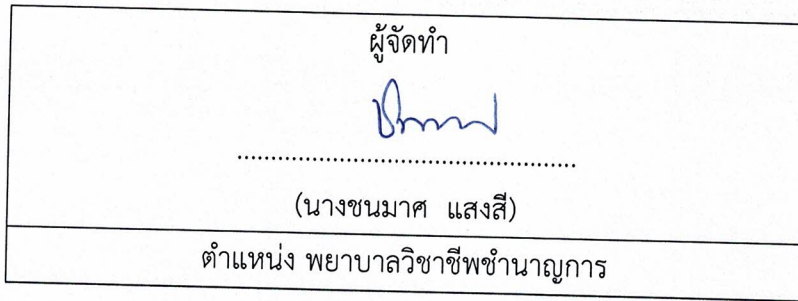 ผู้จัดทำ
.................................................
(นางชนมาศ แสงสี)
ตำแหน่ง พยาบาลวิชาชีพชำนาญการ